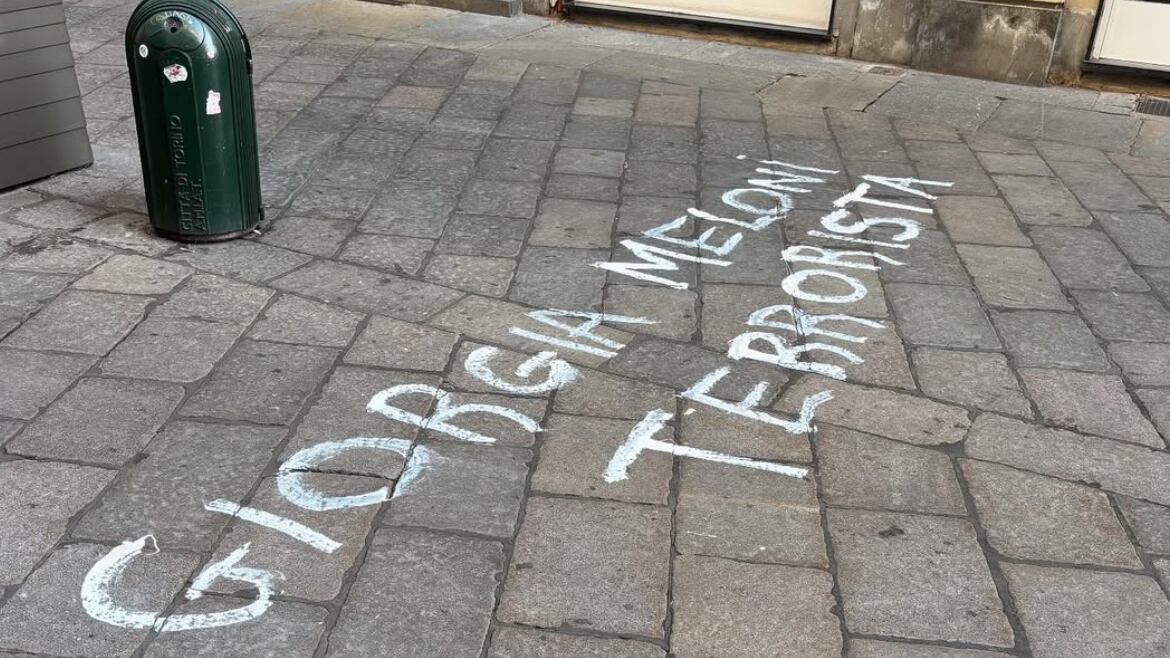 CITTA' DI TORINO
A.M.I.A.T.
GIORGIA MELONI
TERRORISTA